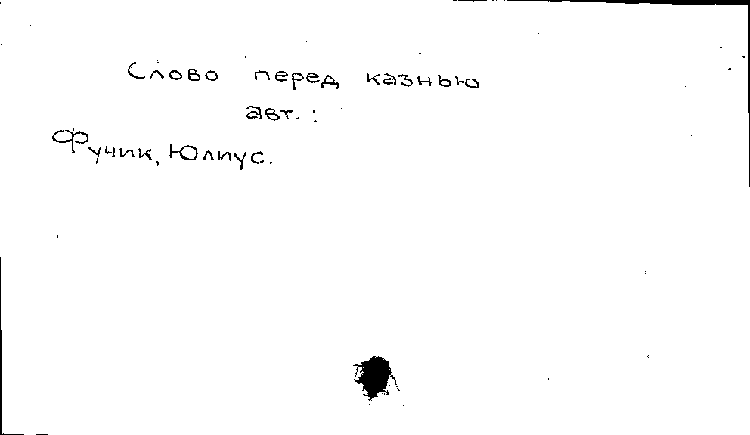 Слово перед казнью
авт. :
Фучик, Юлиус.